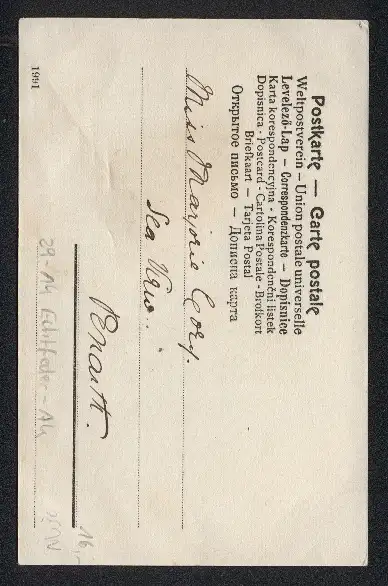 Postkarte — Carte postale
Weltpostverein — Union postale universelle
Levelező-Lap — Correspondenzkarte — Dopisnice
Karta korespondencyjna - Korespondenční listek
Dopisnica - Postcard - Cartolina Postale - Brefkort
Briefkaart — Tarjeta Postal
Открытое письмо — Дописна карта
Miss Marjorie Cory.
Sea View.
Penarth.
1991